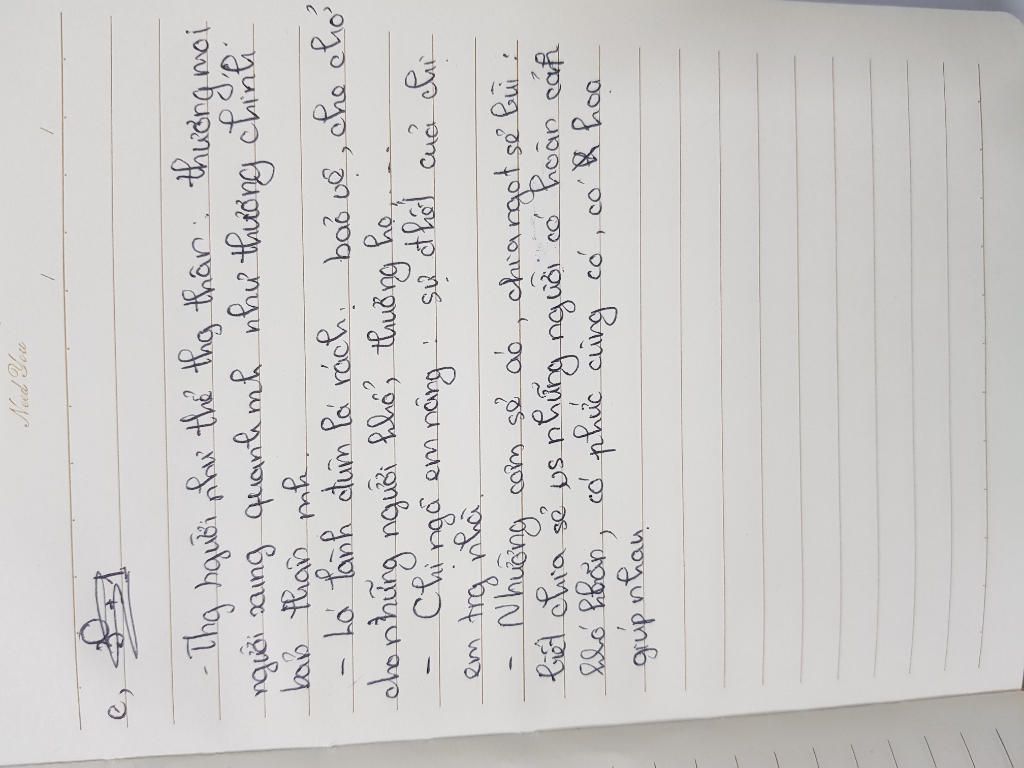 Need You
c,
- Thg người như thể thg thân: thương mọi
người xung quanh mh như thương chính
bản thân mh.
- Lá lành đùm lá rách: bảo vệ, che chở
cho những người khó, thương họ,...
- Chị ngã em nâng: sự thật của chị
em trg nhà.
- Nhường cơm sẻ áo, chia ngọt sẻ bùi:
biết chia sẻ vs những người có hoàn cảnh
khó khăn, có phúc cùng có, có hoạ
giúp nhau.